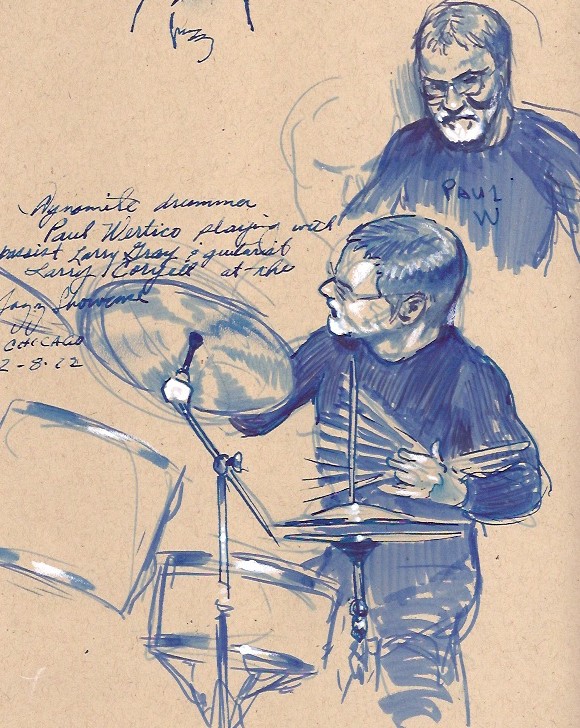 Jazz
Dynomite drummer
Paul Wertico playing with
bassist Larry Gray & guitarist
Larry Coryell at the
Jazz Showcase
CHICAGO
2-8-22
PAUL
W